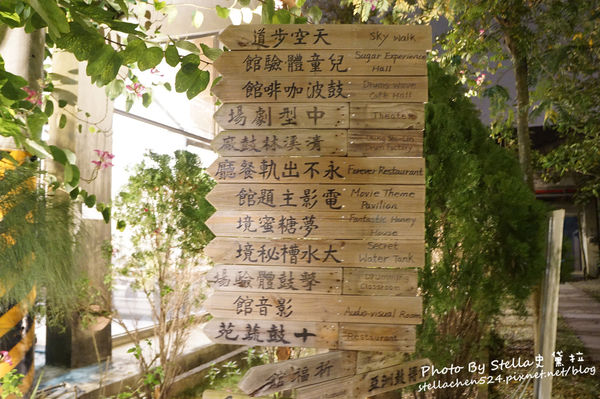 天空步道 Sky walk
兒童體驗館 Sugar Experience
Hall
鼓波咖啡館 Drums Wave
Cafe Hall
中型劇場 Theater
溪林鼓廠
Drum Factory
永不出軌餐廳 Forever Restaurant
電影主題館 Movie Theme
Pavilion
夢糖蜜境 Fantastic Honey
House
大水槽秘境 Secret
Water Tank
擊鼓體驗場 Drumming
Classroom
影音館 Audio-visual Room
十鼓蔬苑 Restaurant
祈福
亞洲鼓
Photo By Stella史黛拉
stellachen524.pixnet.net/blog